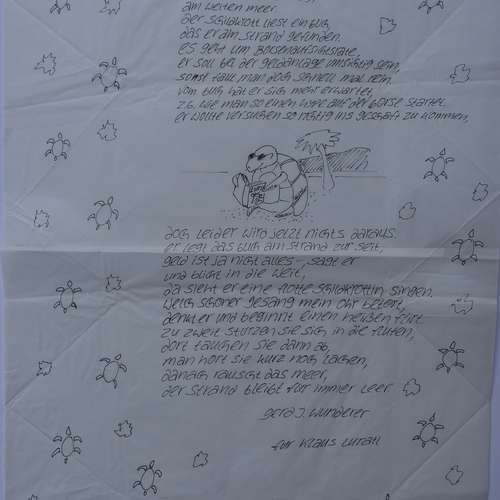 am weiten meer
der schildkrott liest ein buch
das er am strand gefunden.
es geht um börsenaufsichtsräte,
er soll bei der geldanlage umsichtig sein,
sonst fällt man doch schnell mal rein.
vom buch hat er sich mehr erwartet,
z.b. wie man so einen hype auf der börse startet
er wollte versuchen so richtig ins geschäft zu kommen,
doch leider wird jetzt nichts daraus.
er legt das buch am strand zur seit,
geld ist ja nicht alles -, sagt er
und blickt in die weit,
da sieht er eine flotte schildkröttin singen.
welch schöner gesang mein ohr betört,
denkt er und beginnt einen heißen flirt
zu zweit stürzen sie sich in die fluten,
dort tauchen sie dann ab,
man hört sie kurz noch lachen,
danach rauscht das meer,
der strand bleibt für immer leer
gerd j. wunderer
für klaus